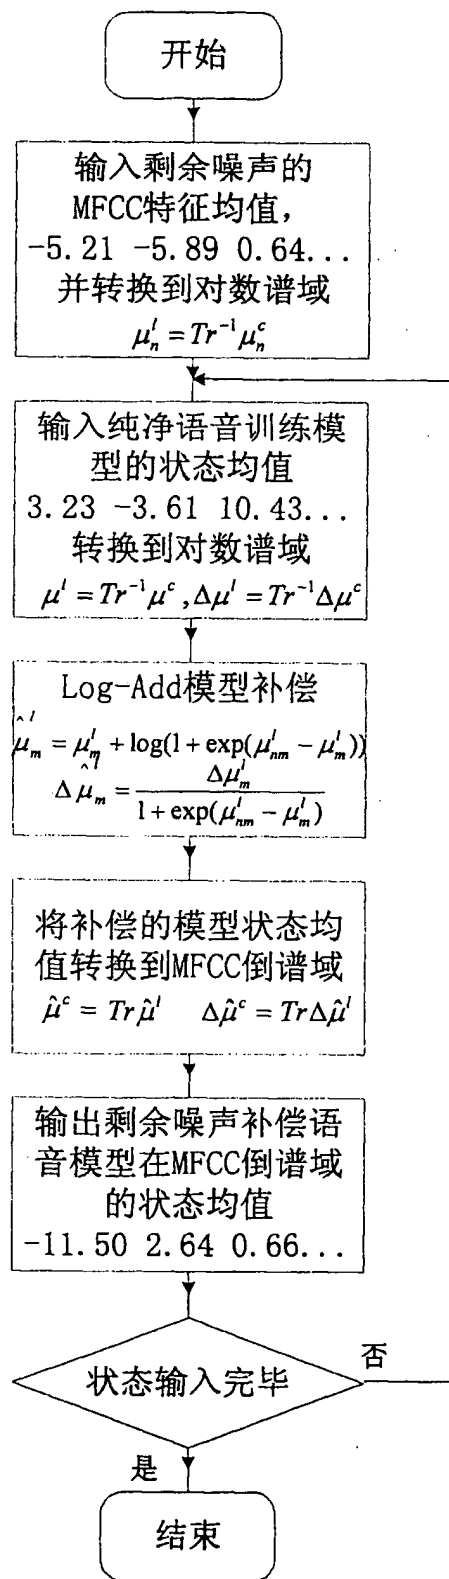 开始
输入剩余噪声的
MFCC特征均值，
-5.21 -5.89 0.64...
并转换到对数谱域
$\mu_n^l = Tr^{-1}\mu_n^c$
输入纯净语音训练模
型的状态均值
3.23 -3.61 10.43...
转换到对数谱域
$\mu^l = Tr^{-1}\mu^c, \Delta\mu^l = Tr^{-1}\Delta\mu^c$
Log-Add模型补偿
$\hat{\mu}_m^l = \mu_m^l + \log(1 + \exp(\mu_{nm}^l - \mu_m^l))$
$\Delta\hat{\mu}_m^l = \frac{\Delta\mu_m^l}{1 + \exp(\mu_{nm}^l - \mu_m^l)}$
将补偿的模型状态均
值转换到MFCC倒谱域
$\hat{\mu}^c = Tr\hat{\mu}^l \quad \Delta\hat{\mu}^c = Tr\Delta\hat{\mu}^l$
输出剩余噪声补偿语
音模型在MFCC倒谱域
的状态均值
-11.50 2.64 0.66...
状态输入完毕
否
是
结束